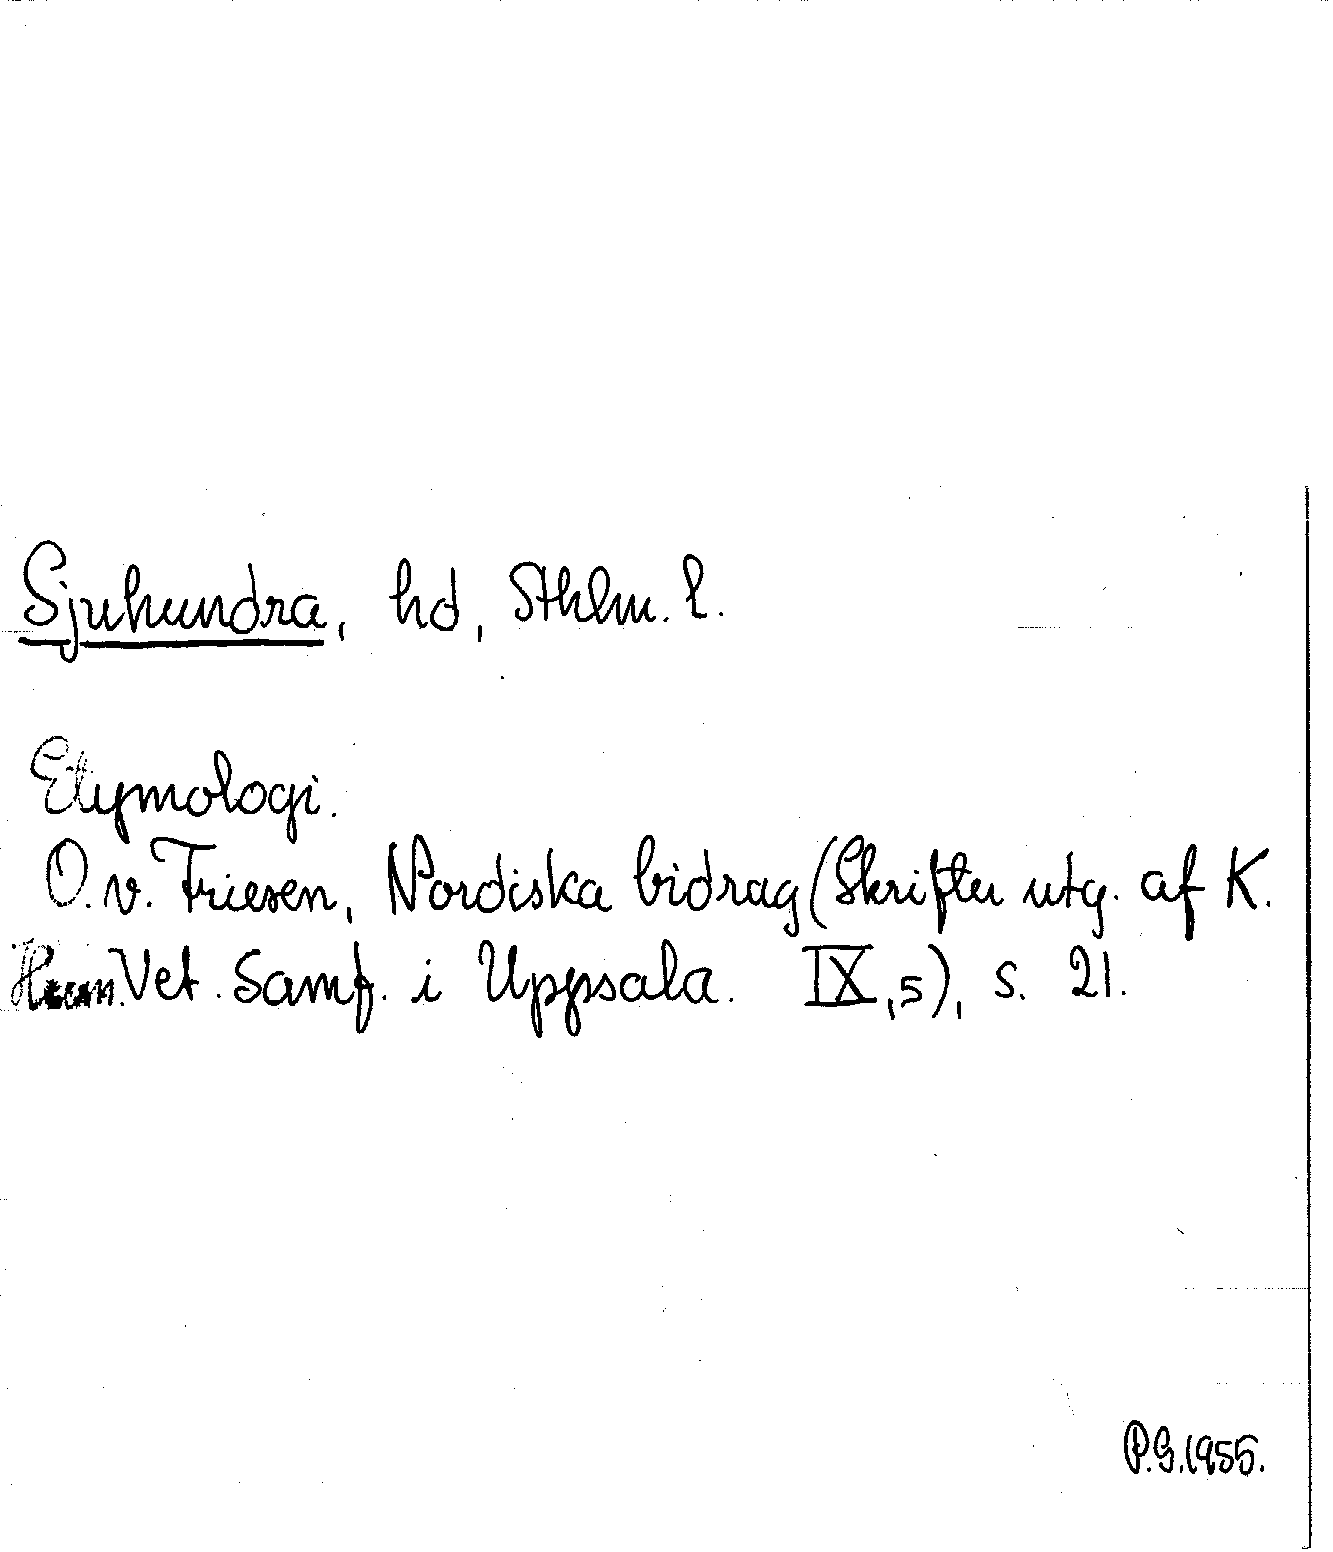 Sjuhundra, hd, Sthlm. l.
Etymologi.
O. v. Friesen, Nordiska bidrag (Skrifter utg. af K.
Hum. Vet. Samf. i Uppsala. IX,5), s. 21.
P.G.1955.